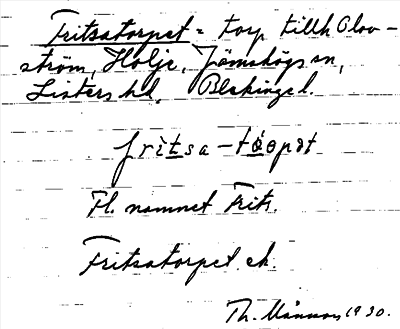 Fritsatorpet = torp tillh. Olov-
ström, Holje, Jämshögs sn,
Listers hd, Blekinge l.
fritsa-tòopət
Fl. namnet Frits.
Fritsatorpet ek.
Th. Månsson 1930.